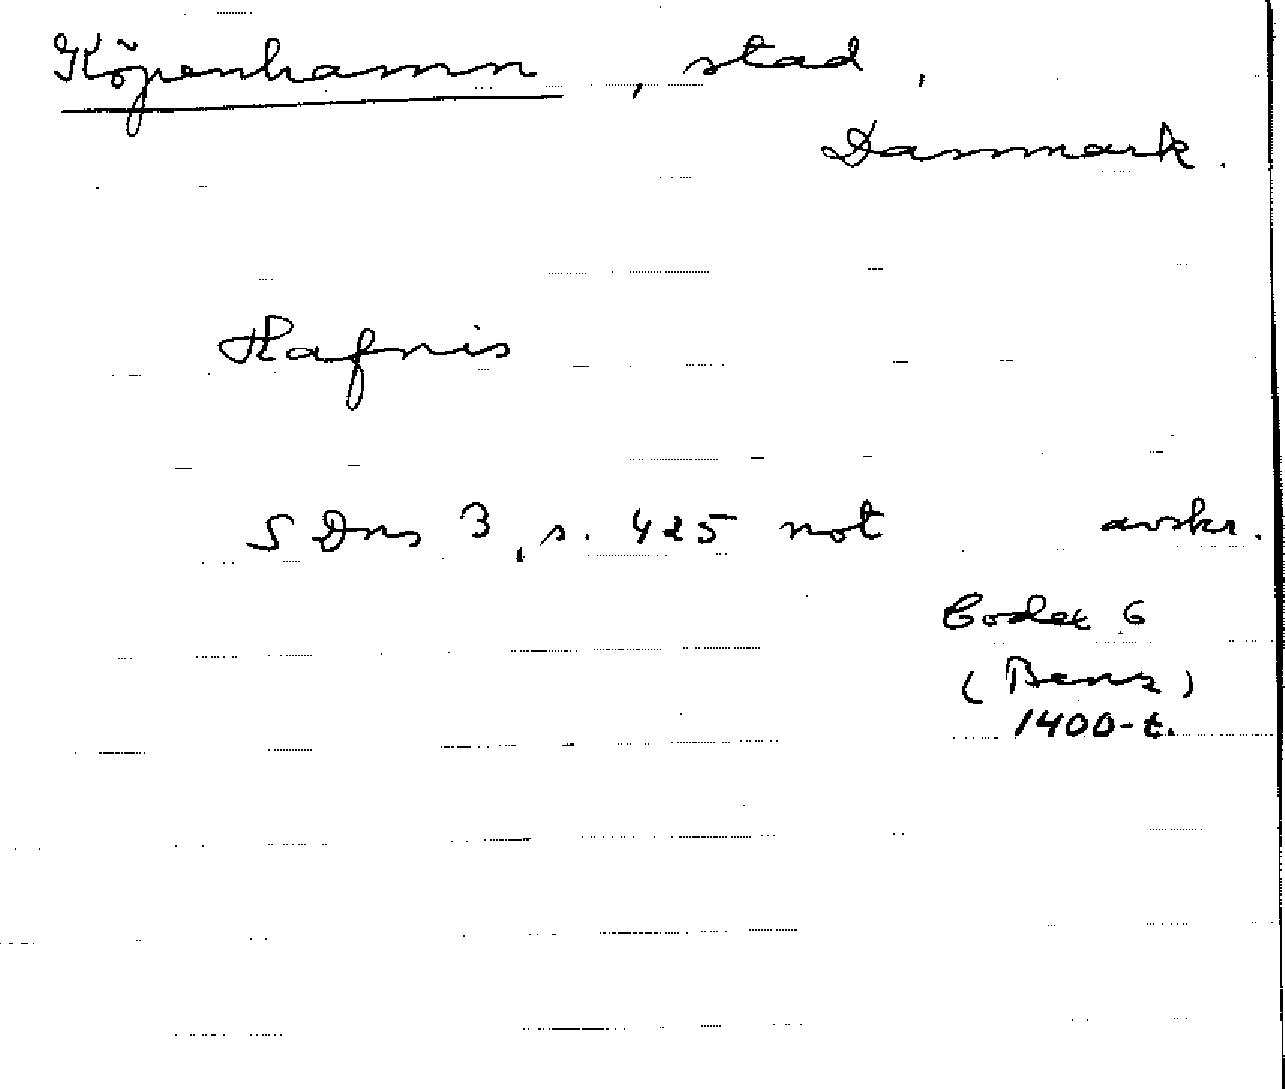 Köpenhamn, stad,
Danmark.
Hafnis
S Dns 3, s. 425 not avskr.
Codex 6
(Benz)
1400-t.